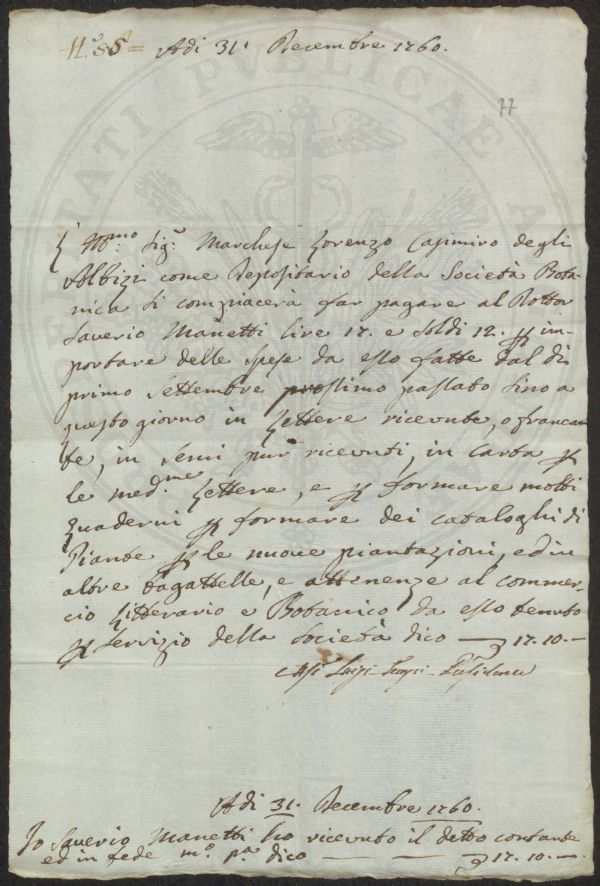 N.° 85 = Adi 31. Decembre 1760.
77
L' Ill.mo Sig.r Marchese Lorenzo Casimiro degli
Albizi come Depositario della Società Bota-
nica si compiacerà far pagare al Dottor
Saverio Manetti lire 17. e soldi 12. p im-
portare delle spese da esso fatte dal di
primo Settembre prossimo passato sino a
questo giorno in Lettere ricevute, o francate
te, in semi pur ricevuti, in Carta p
le med.me Lettere, e p formare molti
Quaderni p formare dei cataloghi di
Piante p le nuove piantazioni, ed in
altre bagattelle, e attenenze al commer-
cio Litterario e Botanico da esso tenuto
p servizio della Società dico — 17. 10. —
Luigi
Adi 31. Decembre 1760.
Io Saverio Manetti ho ricevuto il detto contante
ed in fede m.o p.a dico — — — 17. 10. —
PUBLICAE